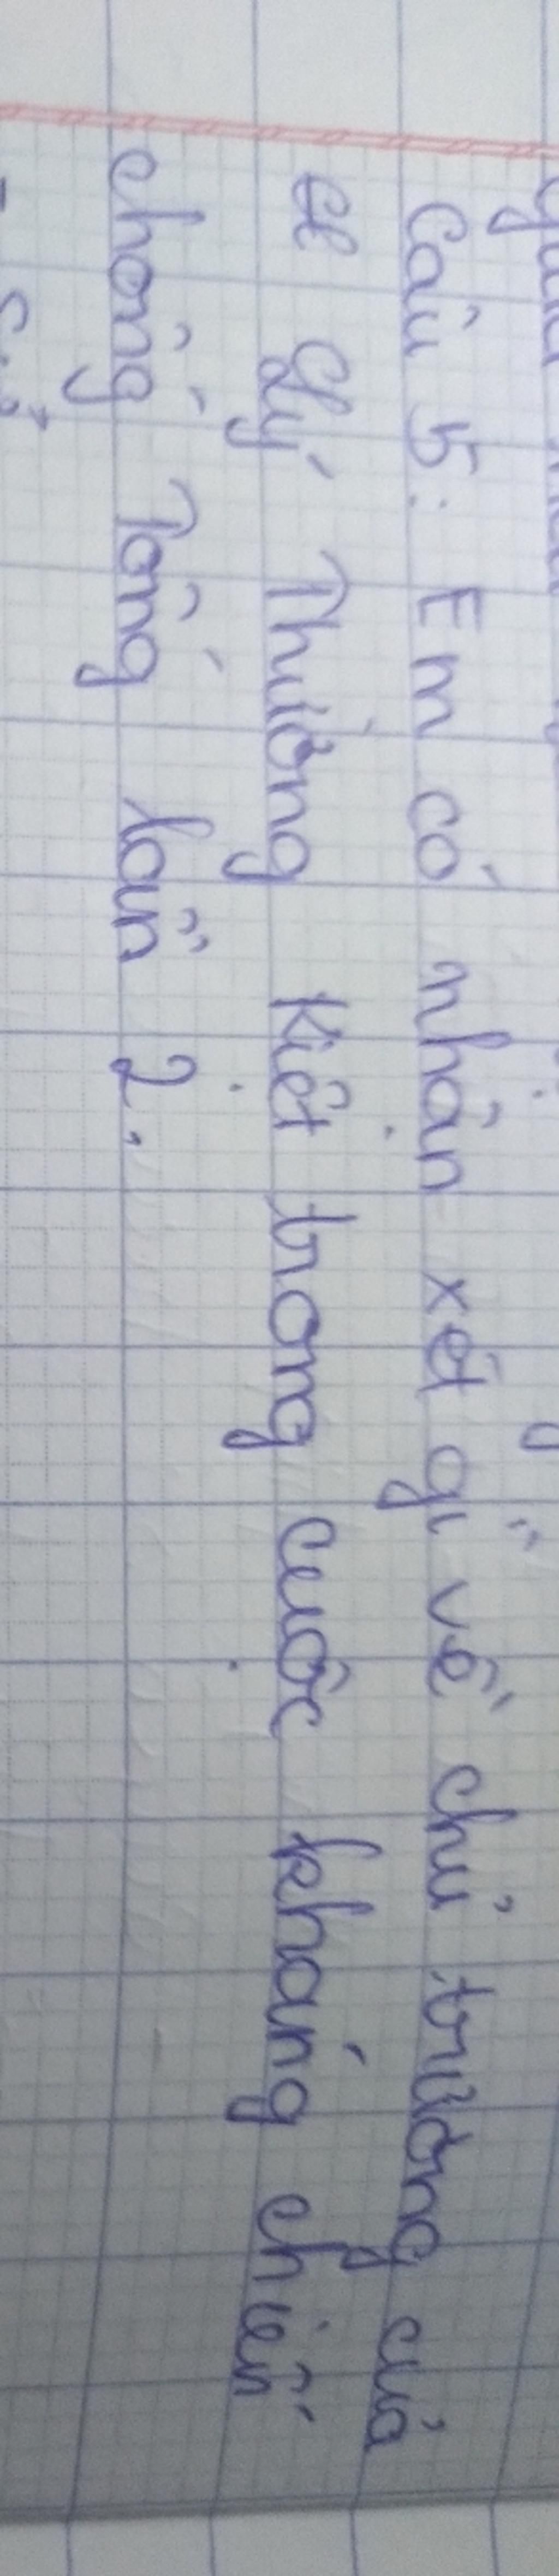 Câu 5: Em có nhận xét gì về chủ trương của
Lý Thường Kiệt trong cuộc kháng chiến
chống Tống lần 2.